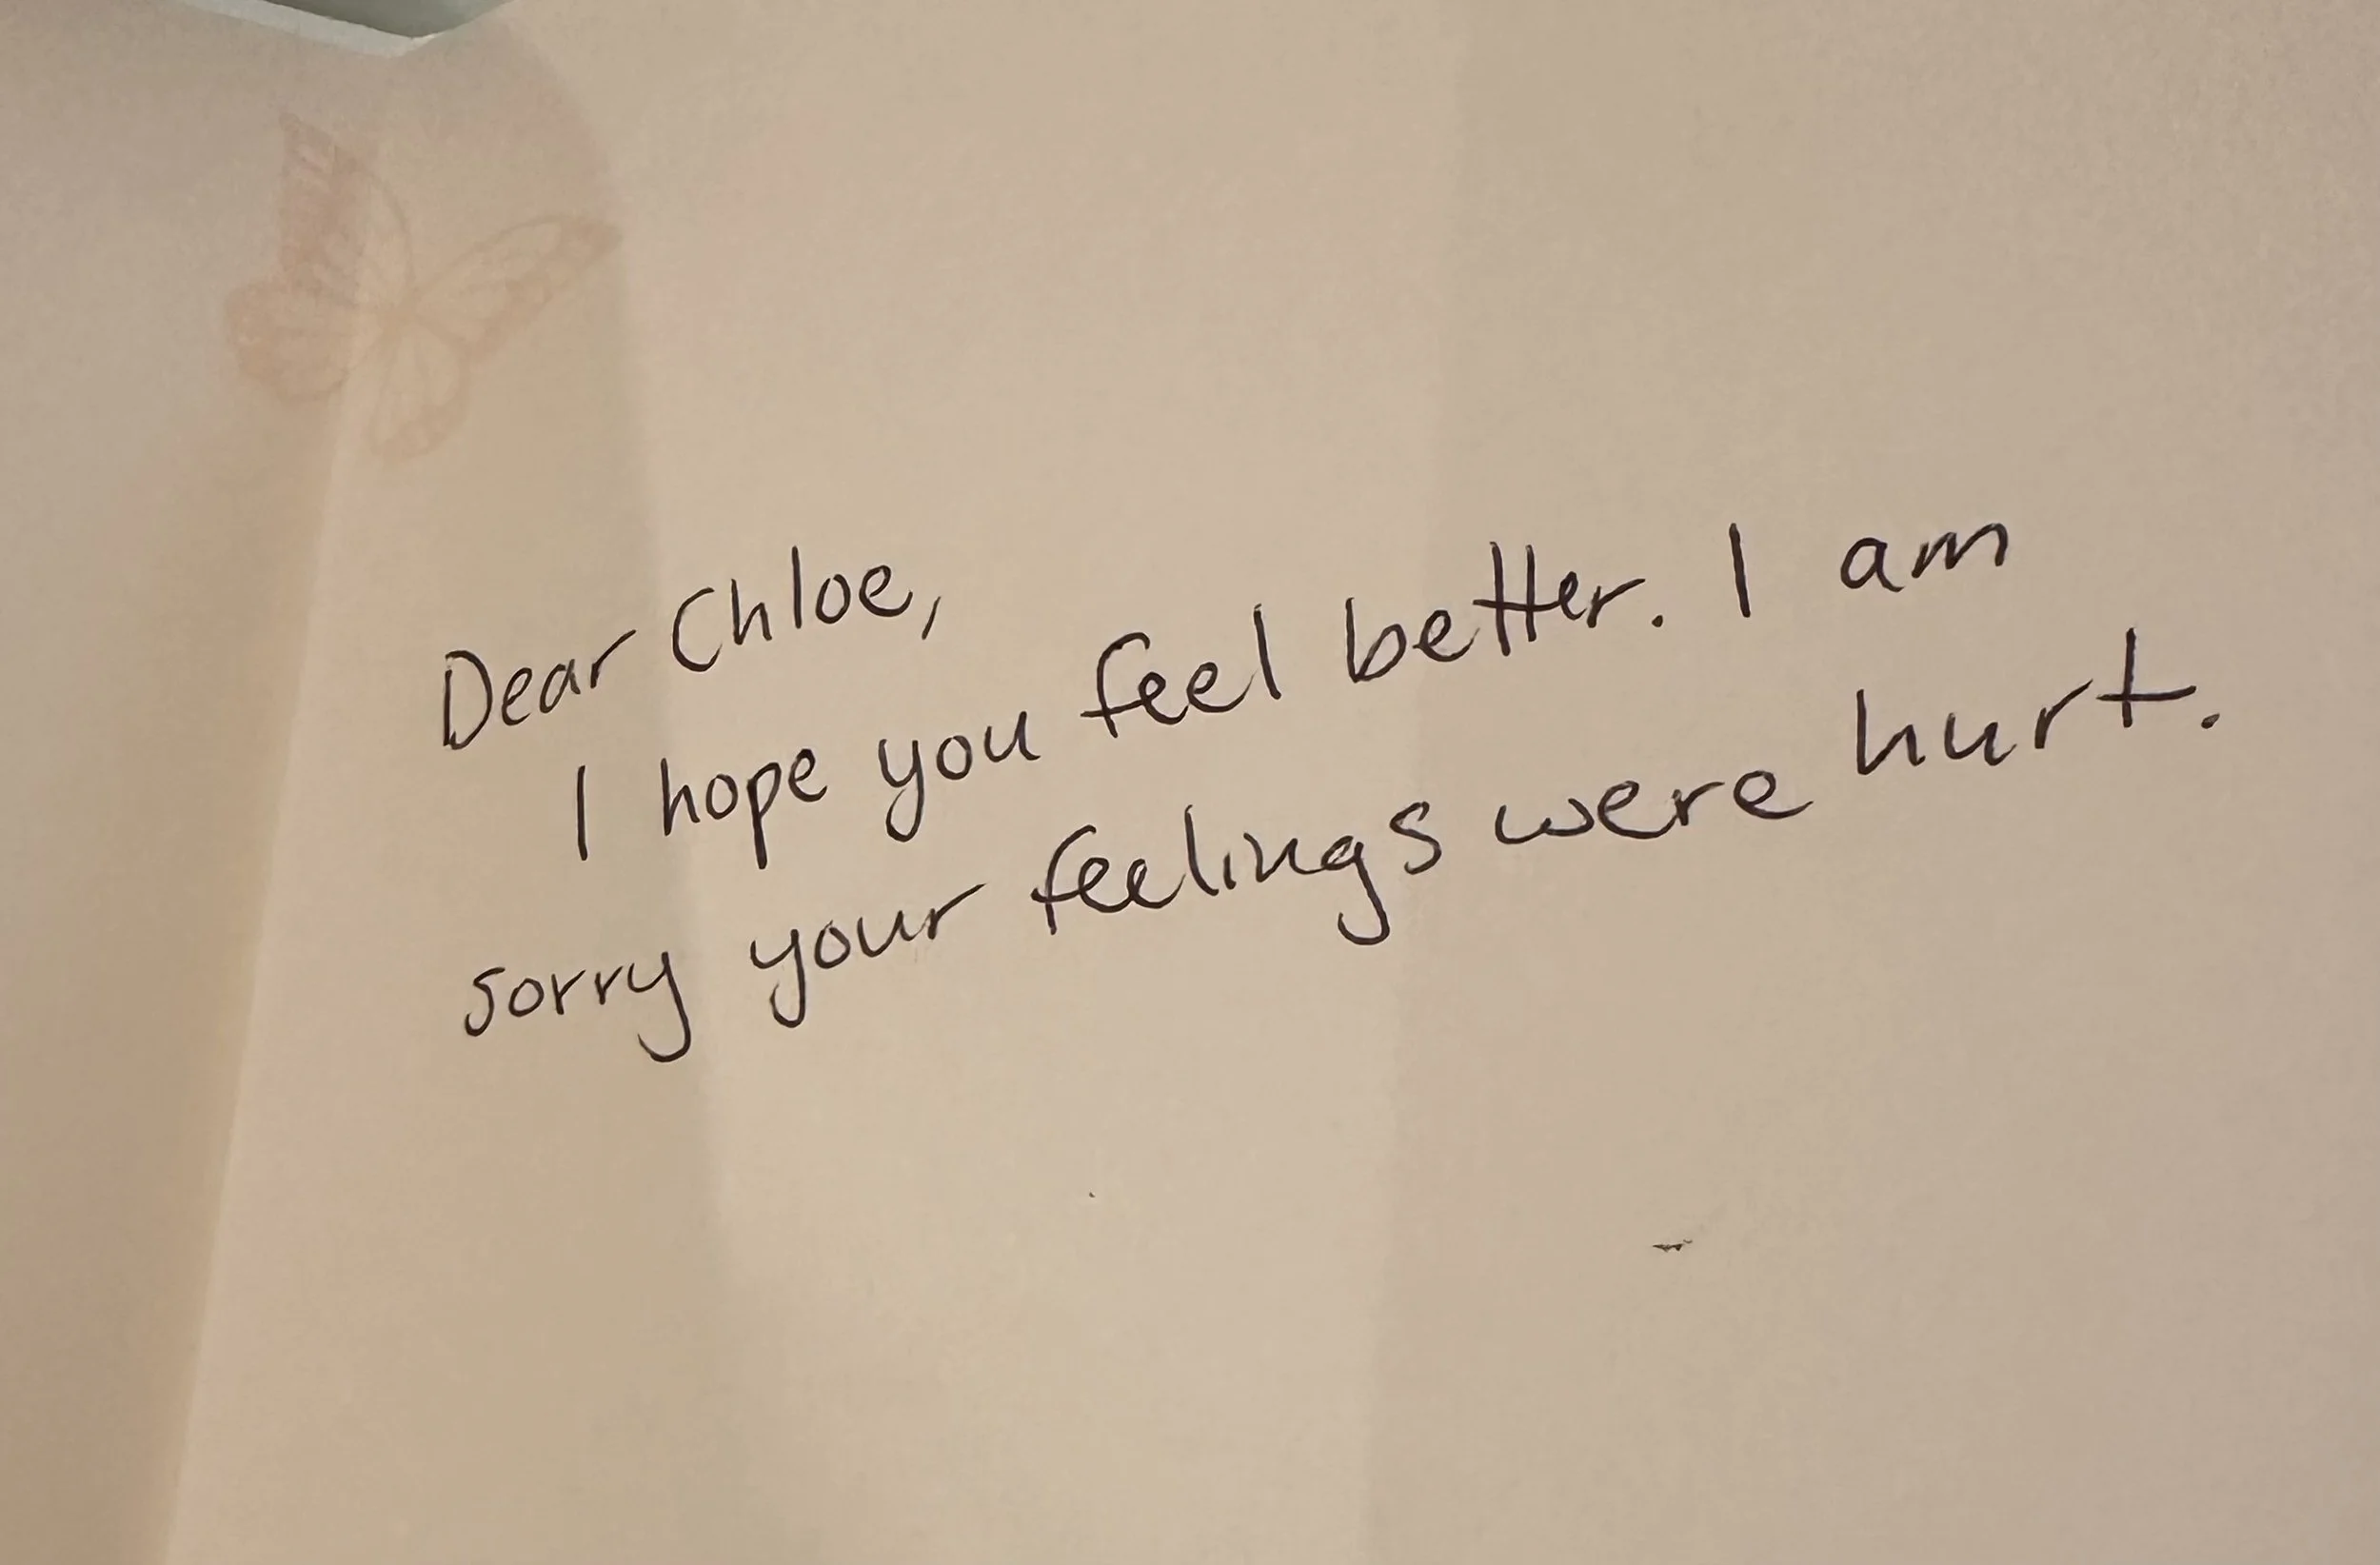 Dear Chloe,
I hope you feel better. I am
sorry your feelings were hurt.